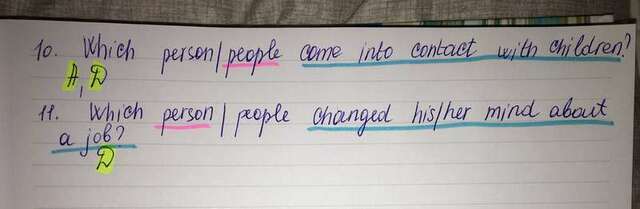 10. Which person/people come into contact with children?
A, D
11. Which person/people changed his/her mind about
a job?
D